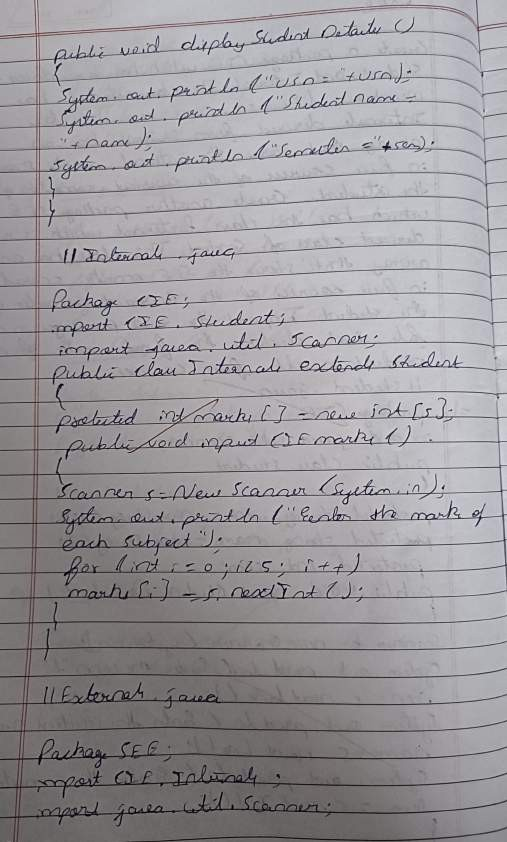 public void display Student Details ()
{
System. out. println ("usn = "+usn);
System. out. println ("Student name =
"+name);
System. out. println ("Semester = "+sem);
}
}
// Internals. java
Package CIE;
import CIE. Student;
import java. util. Scanner;
Public class Internals extends Student
{
protected int marks [] = new int [5];
public void input CIE marks ()
{
Scanner s = New Scanner (System.in);
System. out. println ("Eenter the marks of
each subject");
for (int i = 0; i<5; i++)
marks [i] = s. next Int ();
}
}
// Externals. java
Package SEE;
import CIE. Internals;
import java. util. Scanner;